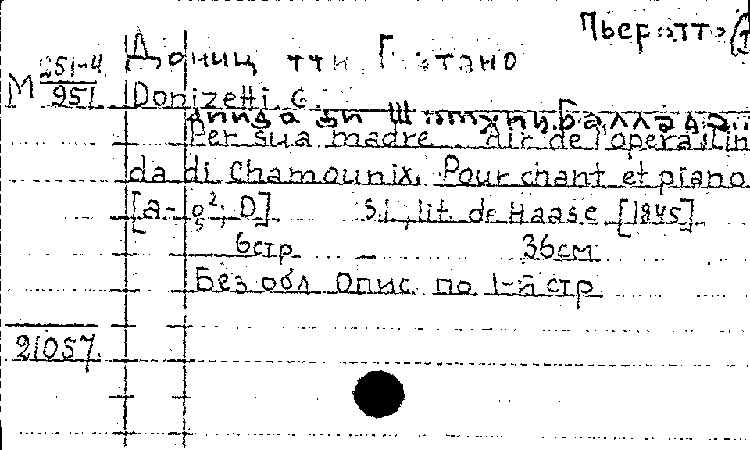 Пьеротто
М 251-4
951
Доницетти Гаэтано
Donizetti G.
Линда ди Шамуни. Баллада
Per sua madre. Air de l'opera Lin
da di Chamounix. Pour chant et piano
[a-g²; D] S.l., lit. de Haase [1845]
6 стр. - 36 см
Без обл Опис. по 1-й стр
21057